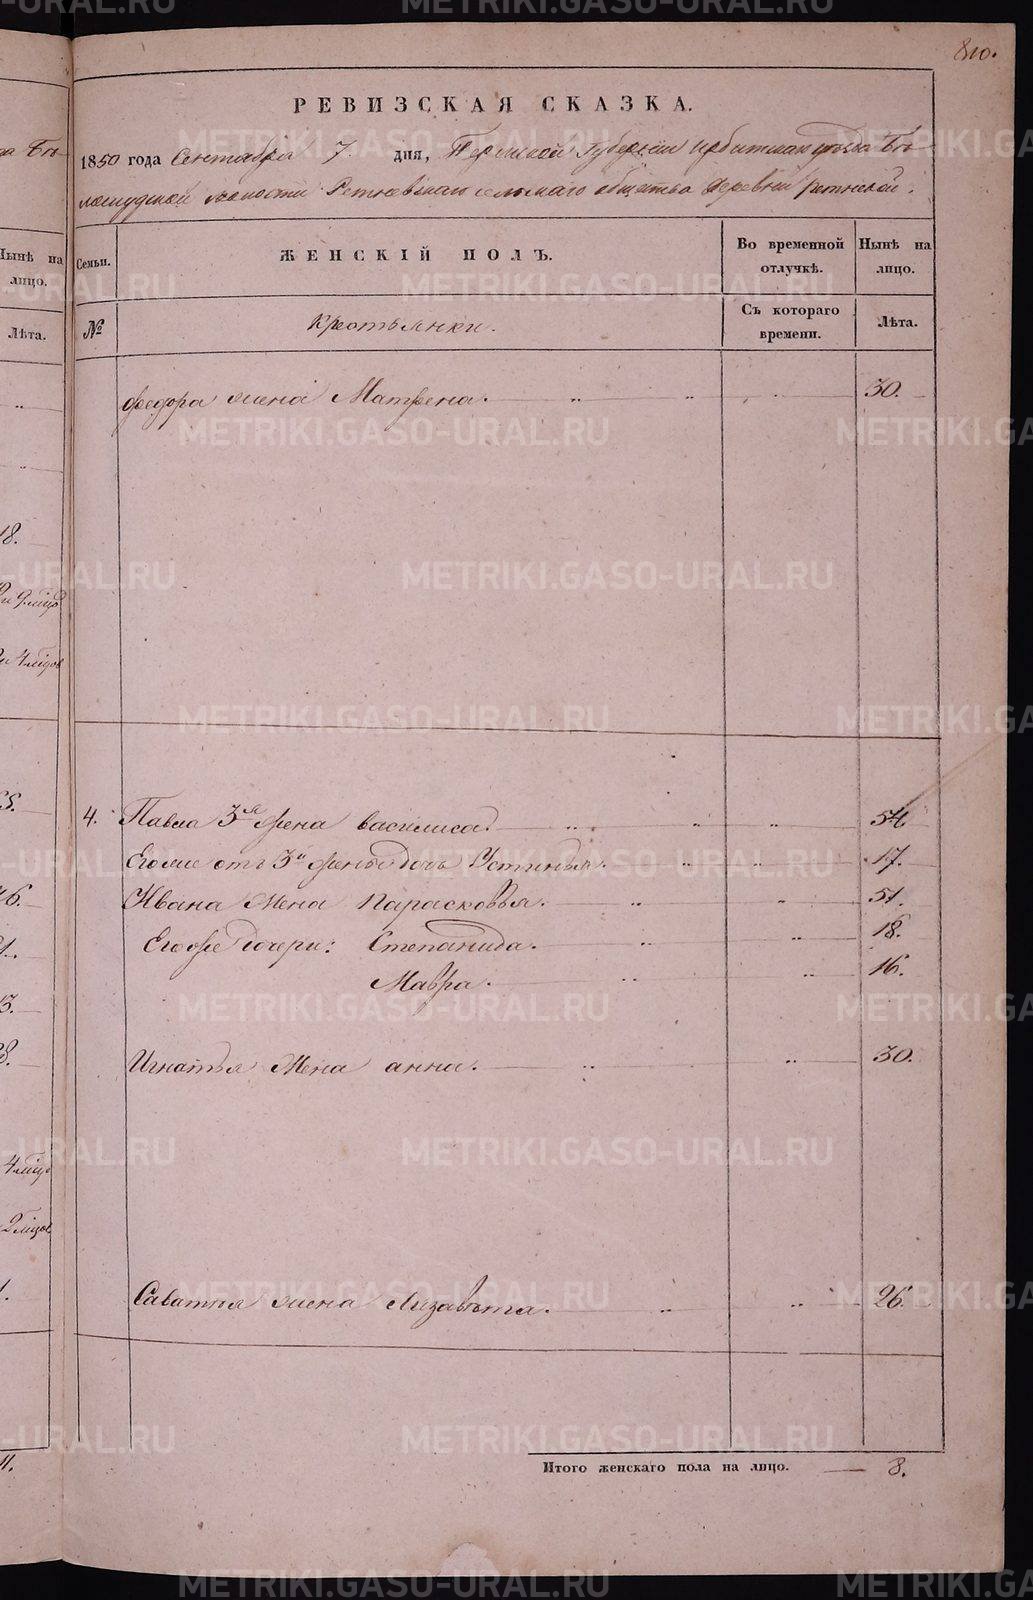 810.
РЕВИЗСКАЯ СКАЗКА.
1850 года Сентября 7 дня, Пермской Губернии Ирбитскаго уѣзда Бѣ-
лослудской волости Ретневскаго сельскаго общества деревни Ретнской.
Семьи. ЖЕНСКІЙ ПОЛЪ. Во временной отлучкѣ. Нынѣ на лицо.
№ Крестьянки. Съ котораго времени. Лѣта.
Федора жена Матрена. 30.
4. Павла 3я жена Василиса. 54.
Его же отъ 3й жены дочь Устинья. 17.
Ивана жена Парасковья. 51.
Его же дочери: Степанида. 18.
Мавра. 16.
Игнатья жена Анна. 30.
Саватия жена Лизавѣта. 26.
Итого женскаго пола на лицо. 8.
Нынѣ на лицо.
Лѣта.
18.
METRIKI.GASO-URAL.RU